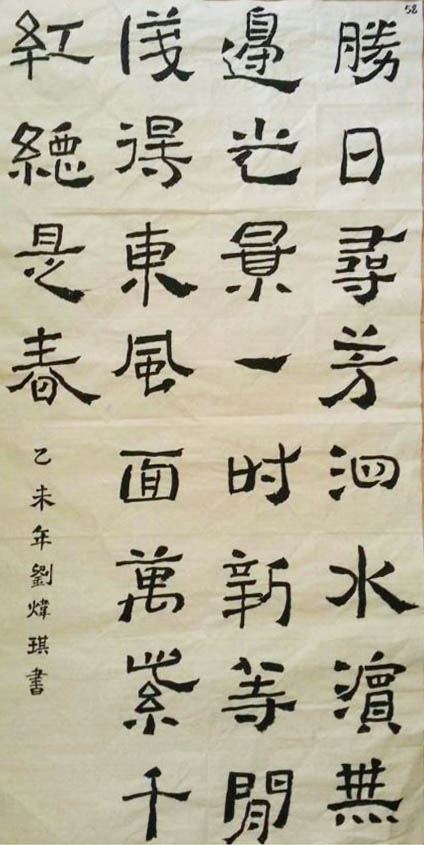 58
勝日尋芳泗水濱無
邊光景一时新等閒
識得東風面萬紫千
紅總是春
乙未年劉煒琪書